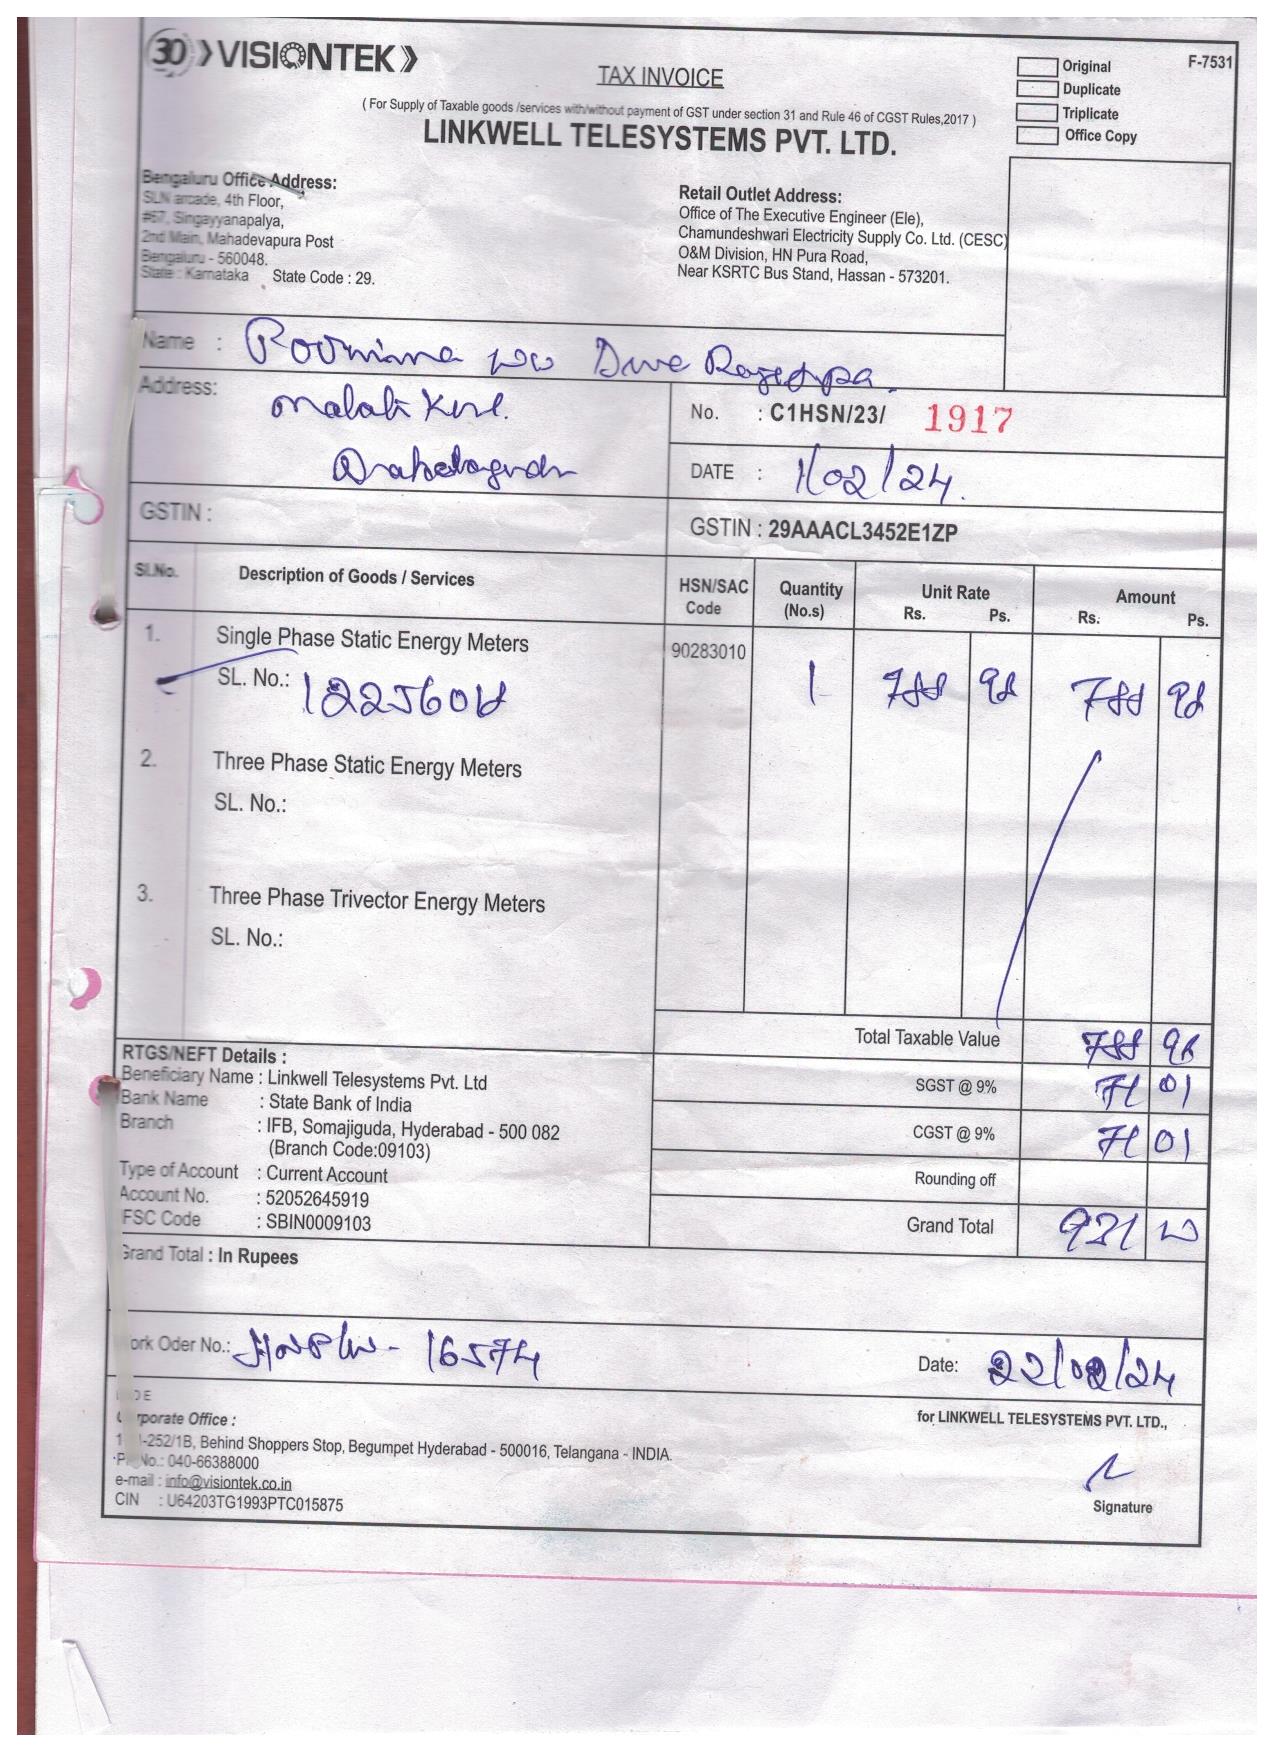 30 VISIONTEK
TAX INVOICE
Original
F-7531
Duplicate
Triplicate
Office Copy
( For Supply of Taxable goods /services with/without payment of GST under section 31 and Rule 46 of CGST Rules,2017 )
LINKWELL TELESYSTEMS PVT. LTD.
Bengaluru Office Address:
SLN arcade, 4th Floor,
#67, Singayyanapalya,
2nd Main, Mahadevapura Post
Bengaluru - 560048.
State : Karnataka State Code : 29.
Retail Outlet Address:
Office of The Executive Engineer (Ele),
Chamundeshwari Electricity Supply Co. Ltd. (CESC)
O&M Division, HN Pura Road,
Near KSRTC Bus Stand, Hassan - 573201.
Name :
Address:
No. : C1HSN/23/ 1917
DATE : 1/02/24.
GSTIN :
GSTIN : 29AAACL3452E1ZP
Sl.No. Description of Goods / Services HSN/SAC Code Quantity (No.s) Unit Rate Rs. Ps. Amount Rs. Ps.
1. Single Phase Static Energy Meters 90283010 1 788 98 788 98
SL. No.:
2. Three Phase Static Energy Meters
SL. No.:
3. Three Phase Trivector Energy Meters
SL. No.:
Total Taxable Value 788 98
SGST @ 9% 71 01
CGST @ 9% 71 01
Rounding off
Grand Total 931 00
RTGS/NEFT Details :
Beneficiary Name : Linkwell Telesystems Pvt. Ltd
Bank Name : State Bank of India
Branch : IFB, Somajiguda, Hyderabad - 500 082
(Branch Code:09103)
Type of Account : Current Account
Account No. : 52052645919
IFSC Code : SBIN0009103
Grand Total : In Rupees
ork Oder No.: 16574
Date: 22/02/24
for LINKWELL TELESYSTEMS PVT. LTD.,
rporate Office :
-252/1B, Behind Shoppers Stop, Begumpet Hyderabad - 500016, Telangana - INDIA.
No.: 040-66388000
e-mail : info@visiontek.co.in
CIN : U64203TG1993PTC015875
Signature